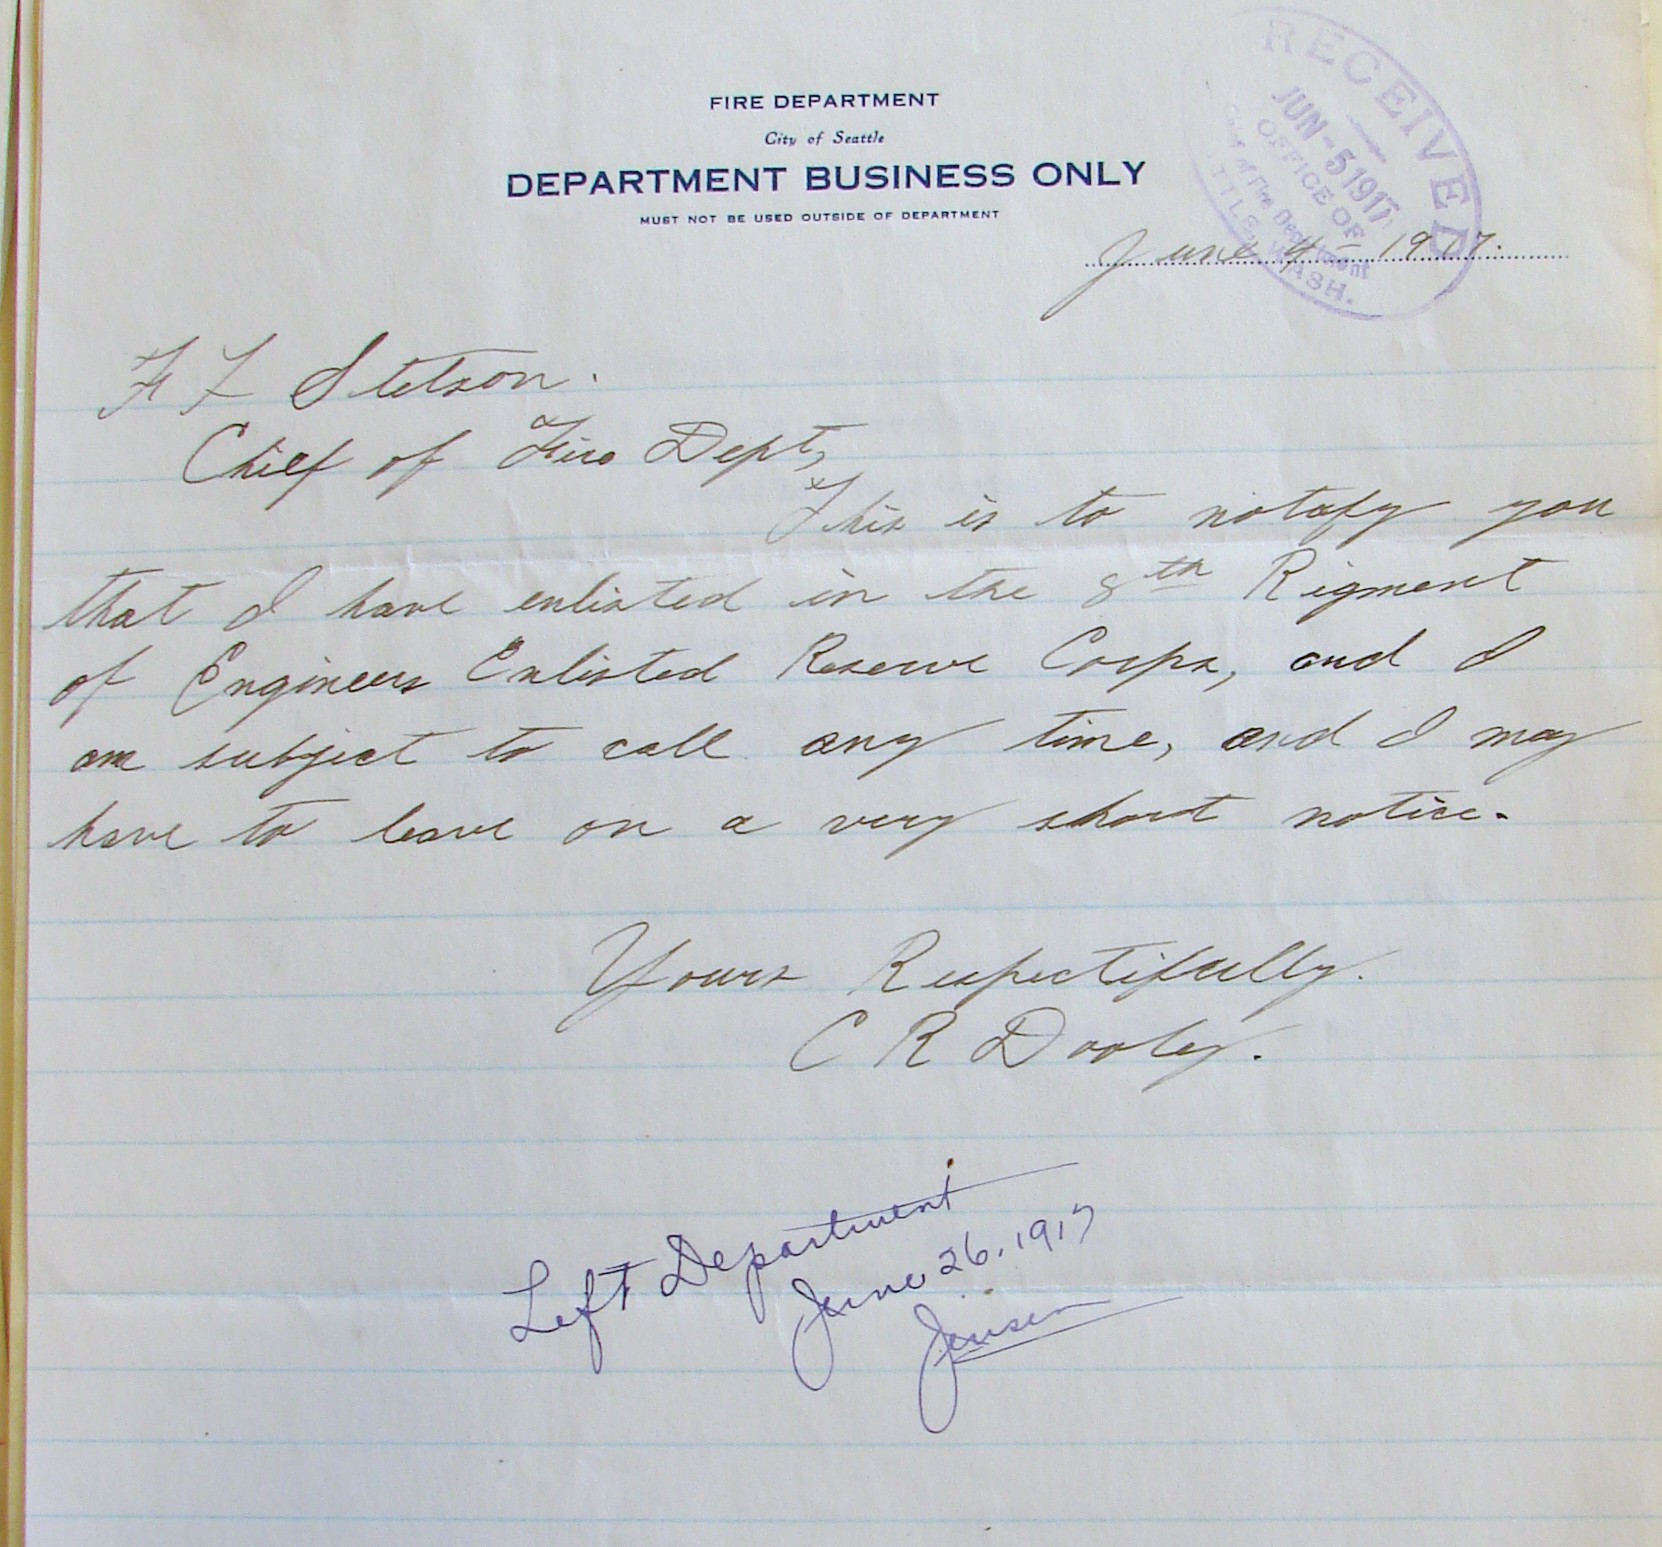 FIRE DEPARTMENT
City of Seattle
DEPARTMENT BUSINESS ONLY
MUST NOT BE USED OUTSIDE OF DEPARTMENT
RECEIVED
JUN - 5 1917
OFFICE OF
Chief of Fire Department
SEATTLE, WASH.
June 4 - 1917.
F L Stetson.
Chief of Fire Dept,
This is to notafy you
that I have enlisted in the 8th Rigment
of Engineers Enlisted Reserve Corps, and I
am subject to call any time, and I may
have to leave on a very short notice.
Yours Respectifully.
C R Dooley.
Left Department
June 26, 1917
Jensen